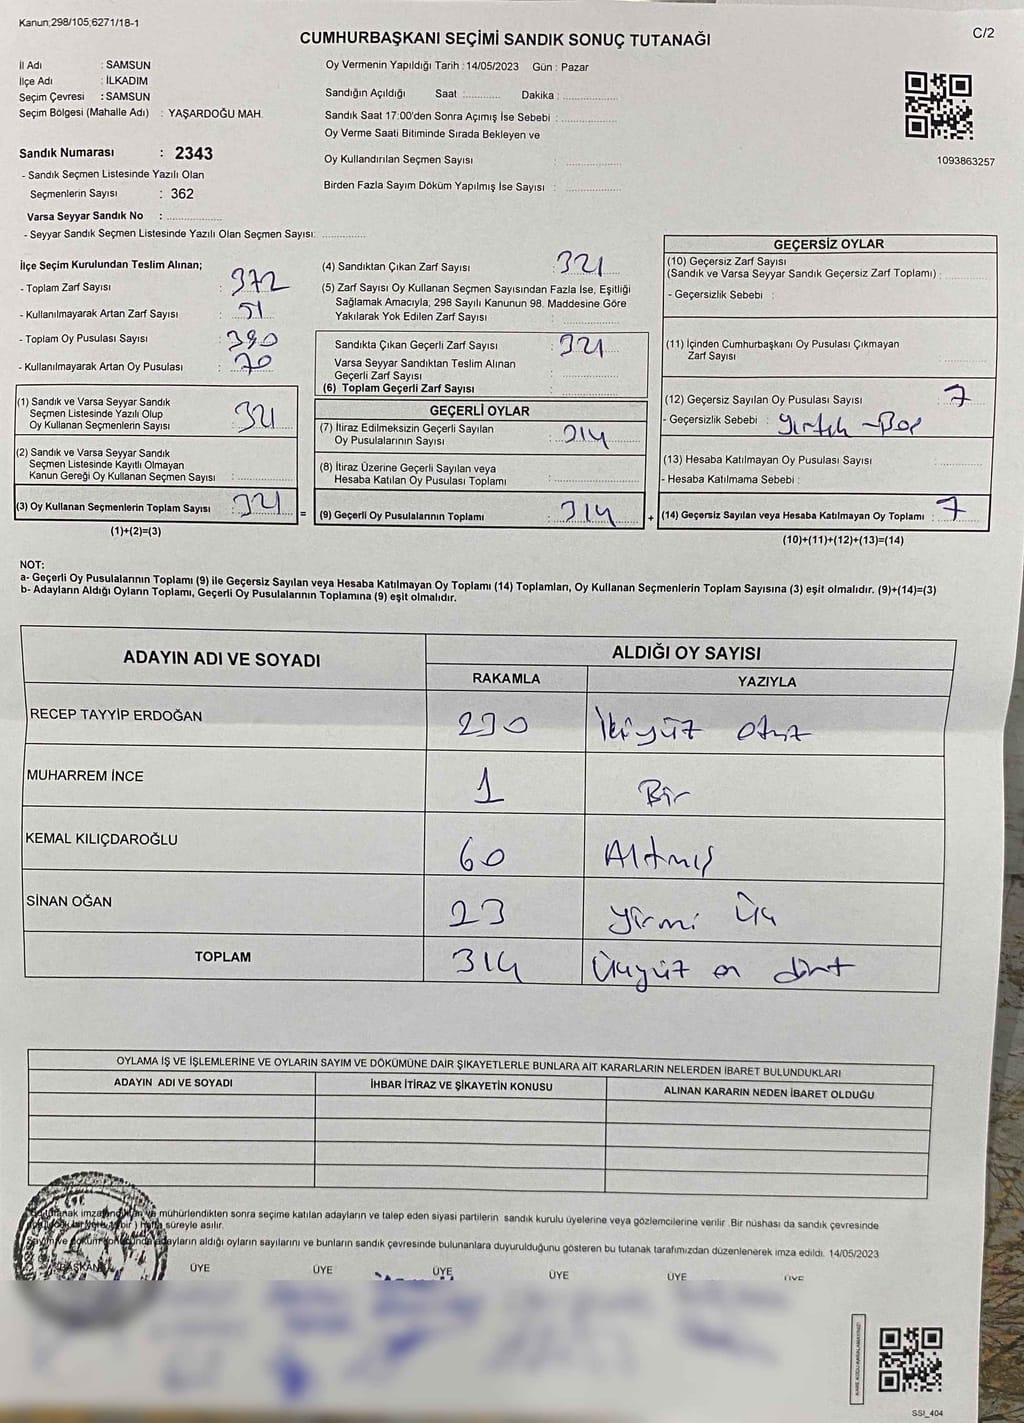 Kanun;298/105,6271/18-1
C/2
CUMHURBAŞKANI SEÇİMİ SANDIK SONUÇ TUTANAĞI
İl Adı : SAMSUN
İlçe Adı : İLKADIM
Seçim Çevresi : SAMSUN
Seçim Bölgesi (Mahalle Adı) : YAŞARDOĞU MAH.
Sandık Numarası : 2343
- Sandık Seçmen Listesinde Yazılı Olan
Seçmenlerin Sayısı : 362
Varsa Seyyar Sandık No : ................
- Seyyar Sandık Seçmen Listesinde Yazılı Olan Seçmen Sayısı: ............
Oy Vermenin Yapıldığı Tarih : 14/05/2023 Gün : Pazar
Sandığın Açıldığı Saat : .......... Dakika : ...............
Sandık Saat 17:00'den Sonra Açımış İse Sebebi : ...............
Oy Verme Saati Bitiminde Sırada Bekleyen ve
Oy Kullandırılan Seçmen Sayısı : ...............
Birden Fazla Sayım Döküm Yapılmış İse Sayısı : ...............
1093863257
İlçe Seçim Kurulundan Teslim Alınan;
- Toplam Zarf Sayısı : 372
- Kullanılmayarak Artan Zarf Sayısı : 51
- Toplam Oy Pusulası Sayısı : 390
- Kullanılmayarak Artan Oy Pusulası : 70
(1) Sandık ve Varsa Seyyar Sandık
Seçmen Listesinde Yazılı Olup
Oy Kullanan Seçmenlerin Sayısı : 321
(2) Sandık ve Varsa Seyyar Sandık
Seçmen Listesinde Kayıtlı Olmayan
Kanun Gereği Oy Kullanan Seçmen Sayısı : ...............
(3) Oy Kullanan Seçmenlerin Toplam Sayısı : 321 =
(1)+(2)=(3)
(4) Sandıktan Çıkan Zarf Sayısı : 321
(5) Zarf Sayısı Oy Kullanan Seçmen Sayısından Fazla İse, Eşitliği
Sağlamak Amacıyla, 298 Sayılı Kanunun 98. Maddesine Göre
Yakılarak Yok Edilen Zarf Sayısı : ...............
Sandıkta Çıkan Geçerli Zarf Sayısı : 321
Varsa Seyyar Sandıktan Teslim Alınan
Geçerli Zarf Sayısı : ...............
(6) Toplam Geçerli Zarf Sayısı : ...............
GEÇERLİ OYLAR
(7) İtiraz Edilmeksizin Geçerli Sayılan
Oy Pusulalarının Sayısı : 314
(8) İtiraz Üzerine Geçerli Sayılan veya
Hesaba Katılan Oy Pusulası Toplamı : ...............
(9) Geçerli Oy Pusulalarının Toplamı : 314 +
GEÇERSİZ OYLAR
(10) Geçersiz Zarf Sayısı
(Sandık ve Varsa Seyyar Sandık Geçersiz Zarf Toplamı) : ...............
- Geçersizlik Sebebi :
(11) İçinden Cumhurbaşkanı Oy Pusulası Çıkmayan
Zarf Sayısı : ...............
(12) Geçersiz Sayılan Oy Pusulası Sayısı : 7
- Geçersizlik Sebebi : yırtık - Boş
(13) Hesaba Katılmayan Oy Pusulası Sayısı : ...............
- Hesaba Katılmama Sebebi :
(14) Geçersiz Sayılan veya Hesaba Katılmayan Oy Toplamı : 7
(10)+(11)+(12)+(13)=(14)
NOT:
a- Geçerli Oy Pusulalarının Toplamı (9) ile Geçersiz Sayılan veya Hesaba Katılmayan Oy Toplamı (14) Toplamları, Oy Kullanan Seçmenlerin Toplam Sayısına (3) eşit olmalıdır. (9)+(14)=(3)
b- Adayların Aldığı Oyların Toplamı, Geçerli Oy Pusulalarının Toplamına (9) eşit olmalıdır.
ADAYIN ADI VE SOYADI ALDIĞI OY SAYISI
RAKAMLA YAZIYLA
RECEP TAYYİP ERDOĞAN 230 İkiyüz otuz
MUHARREM İNCE 1 Bir
KEMAL KILIÇDAROĞLU 60 Altmış
SİNAN OĞAN 23 yirmi üç
TOPLAM 314 Üçyüz on dört
OYLAMA İŞ VE İŞLEMLERİNE VE OYLARIN SAYIM VE DÖKÜMÜNE DAİR ŞİKAYETLERLE BUNLARA AİT KARARLARIN NELERDEN İBARET BULUNDUKLARI
ADAYIN ADI VE SOYADI İHBAR İTİRAZ VE ŞİKAYETİN KONUSU ALINAN KARARIN NEDEN İBARET OLDUĞU
mühürlendikten sonra seçime katılan adayların ve talep eden siyasi partilerin sandık kurulu üyelerine veya gözlemcilerine verilir. Bir nüshası da sandık çevresinde
süreyle asılır.
adayların aldığı oyların sayılarını ve bunların sandık çevresinde bulunanlara duyurulduğunu gösteren bu tutanak tarafımızdan düzenlenerek imza edildi. 14/05/2023
BAŞKAN ÜYE ÜYE ÜYE ÜYE ÜYE ÜYE
SSI_404